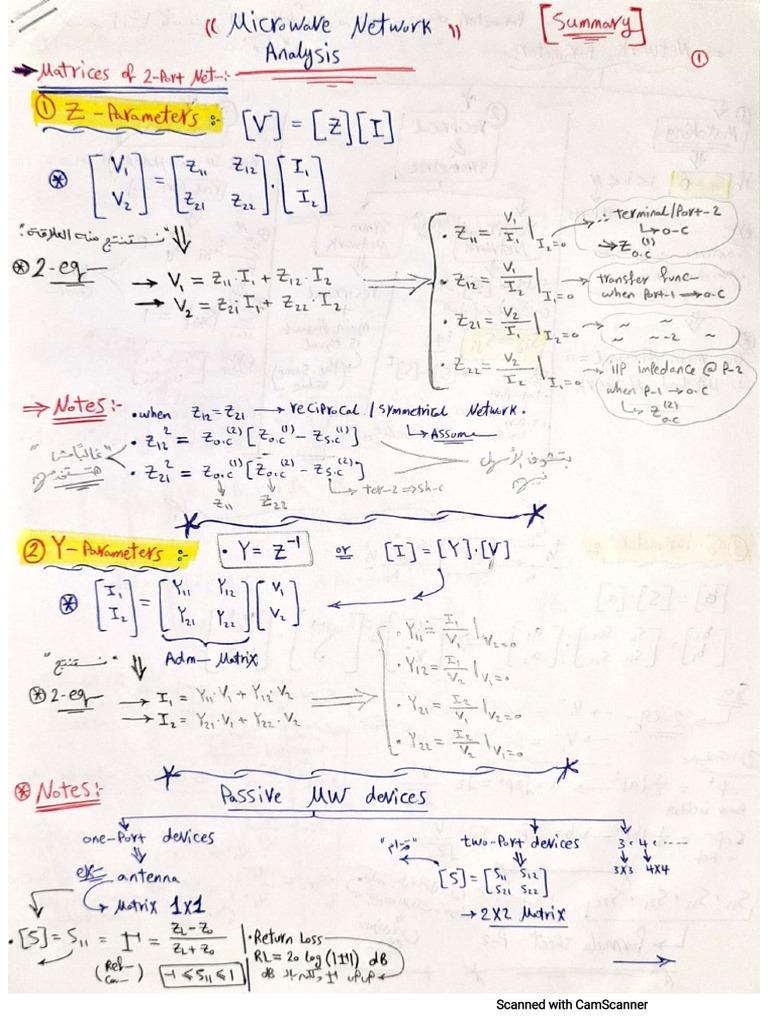 (( Microwave Network ))
Analysis
[Summary]
①
→ Matrices of 2-Port Net-:
① Z-Parameters:- [V] = [Z][I]
⊛ [V₁ V₂] = [Z₁₁ Z₁₂ Z₂₁ Z₂₂] · [I₁ I₂]
"نستنتج منه العلاقات:" ⇓
⊛ 2-eq
→ V₁ = Z₁₁·I₁ + Z₁₂·I₂
→ V₂ = Z₂₁·I₁ + Z₂₂·I₂
· Z₁₁ = V₁/I₁ |I₂=0 → terminal/Port-2
↳ o-c
→ Z o.c ⁽¹⁾
· Z₁₂ = V₁/I₂ |I₁=0 → transfer func-
when Port-1 → o-c
· Z₂₁ = V₂/I₁ |I₂=0 → ~ ~ ~
~ ~-2 ~
· Z₂₂ = V₂/I₂ |I₁=0 → I/P impedance @ P-2
when P-1 → o-c
↳ Z o.c ⁽²⁾
⇒ Notes:- · when Z₁₂=Z₂₁ → reciprocal/symmetrical Network.
↳ Assume
· Z₁₂² = Z o.c ⁽²⁾ [Z o.c ⁽¹⁾ - Z s.c ⁽¹⁾]
· Z₂₁² = Z o.c ⁽¹⁾ [Z o.c ⁽²⁾ - Z s.c ⁽²⁾]
"غالبًا مش
هنستخدمهم"
بنشوف الأسهل
فيهم
Z₁₁ Z₂₂ ↳ ter-2 ⇒ sh-c
② Y-Parameters :- · Y = Z⁻¹ or [I] = [Y]·[V]
⊛ [I₁ I₂] = [Y₁₁ Y₁₂ Y₂₁ Y₂₂] [V₁ V₂]
Adm- Matrix
"نستنتج" ⇓
⊛ 2-eq
→ I₁ = Y₁₁·V₁ + Y₁₂·V₂
→ I₂ = Y₂₁·V₁ + Y₂₂·V₂
· Y₁₁ = I₁/V₁ |V₂=0
· Y₁₂ = I₁/V₂ |V₁=0
· Y₂₁ = I₂/V₁ |V₂=0
· Y₂₂ = I₂/V₂ |V₁=0
⊛ Notes:
Passive MW devices
one-Port devices
ex- antenna
↳ Matrix 1x1
two-Port devices
[S] = [S₁₁ S₁₂ S₂₁ S₂₂]
→ 2x2 Matrix
3 · 4 · .....
3x3 4x4
· [S] = S₁₁ = Γ = (Z_L - Z₀)/(Z_L + Z₀)
(Ref- Co-) -1 ≤ S₁₁ ≤ 1
· Return Loss
RL = 20 log (|Γ|) dB
Scanned with CamScanner